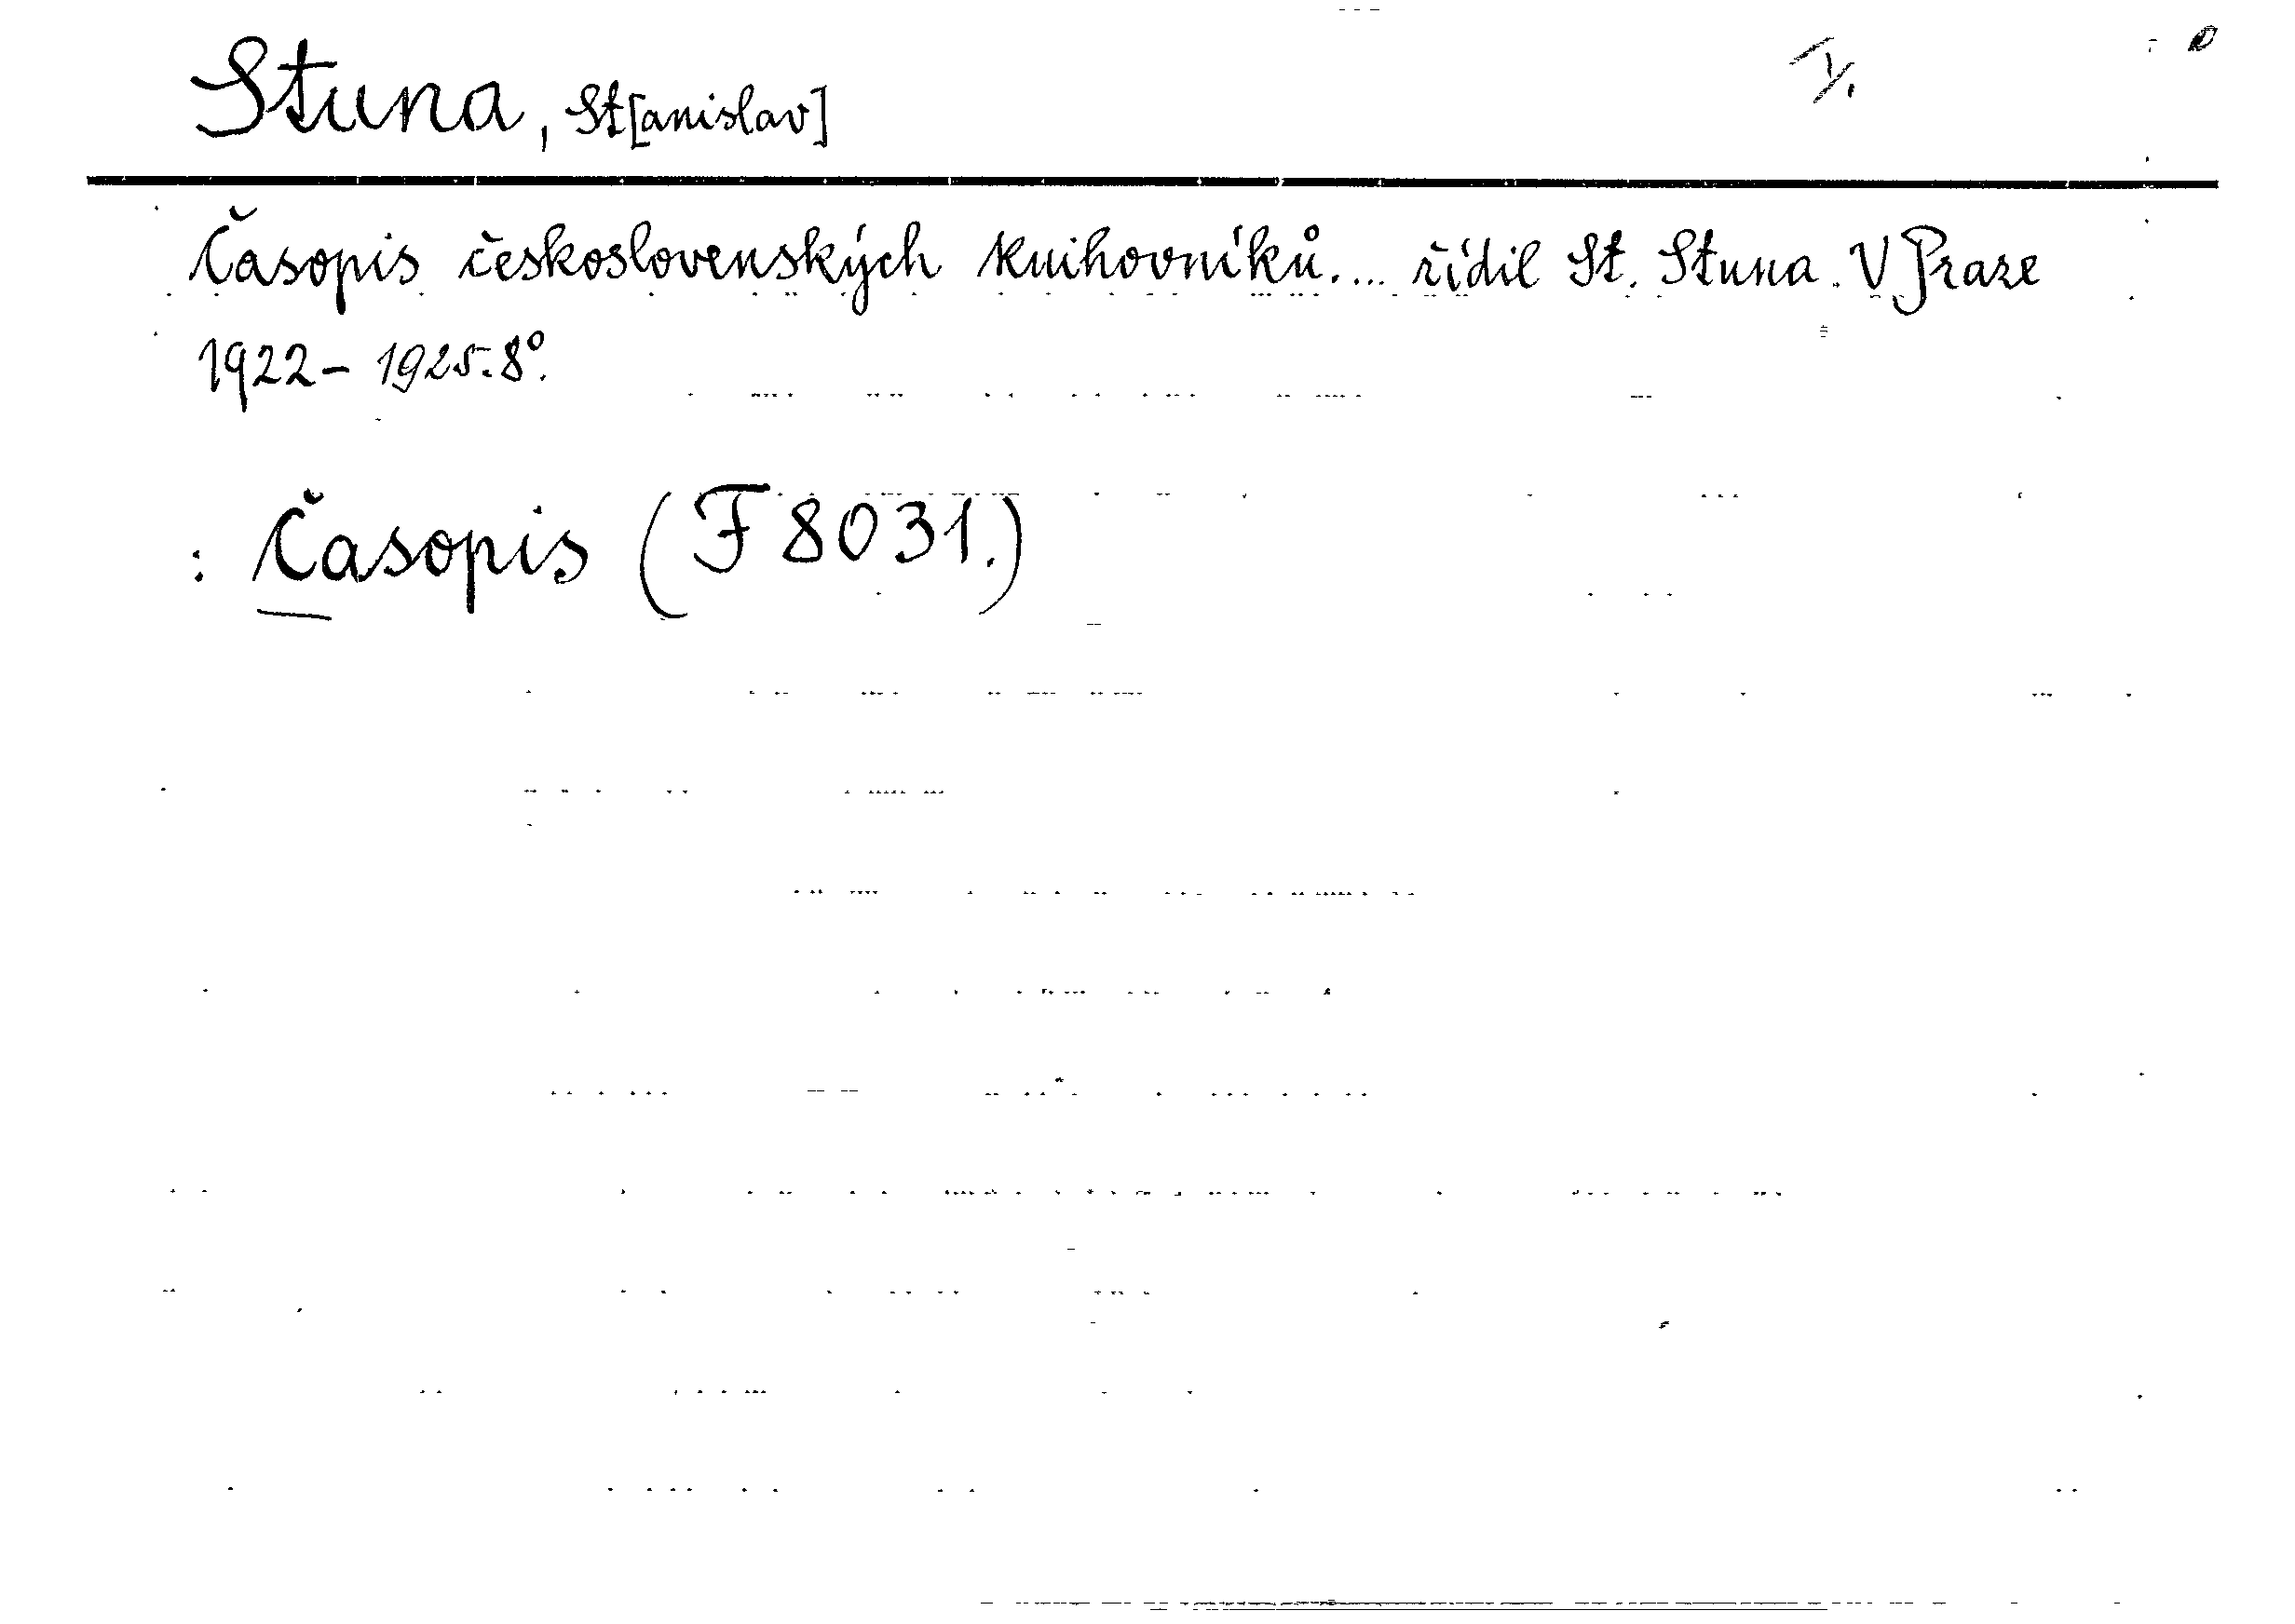 Stuna, St[anislav]
Časopis československých knihovníků. ... řídil St. Stuna. V Praze
1922 - 1925. 8°.
: Časopis (F 8031.)